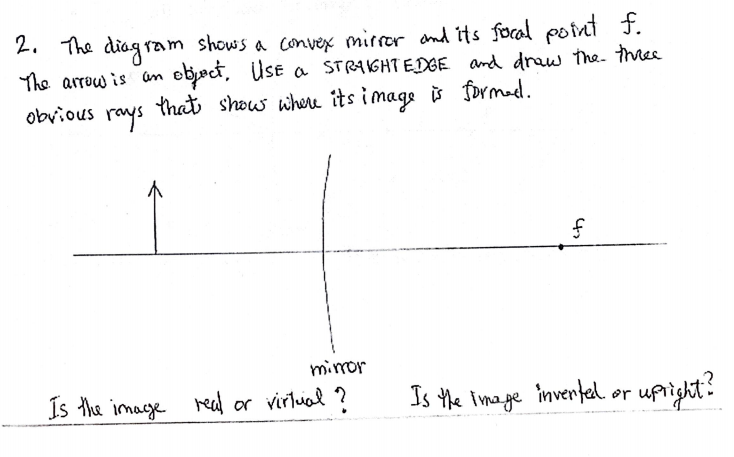 2. The diagram shows a convex mirror and its focal point f.
The arrow is an object. USE a STRAIGHT EDGE and draw the three
obvious rays that shows where its image is formed.
f
mirror
Is the image real or virtual? Is the image inverted or upright?